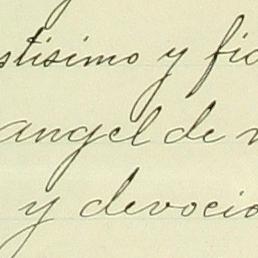 stisimo y fid
angel de
y devocio